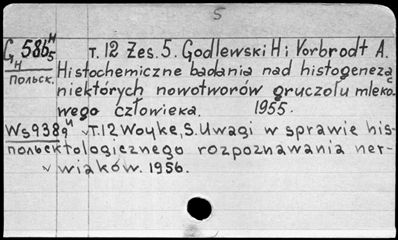 5
G 586 н/5 т. 12 Zes. 5. Godlewski H i Vorbrodt A.
Ч н
польск. Histochemiczne badania nad histogenezą
niektórych nowotworów gruczołu mleko-
wego człowieka. 1955.
Ws 9389 и т. 12 Woyke, S. Uwagi w sprawie his-
польск tologicznego rozpoznawania ner-
wiaków. 1956.